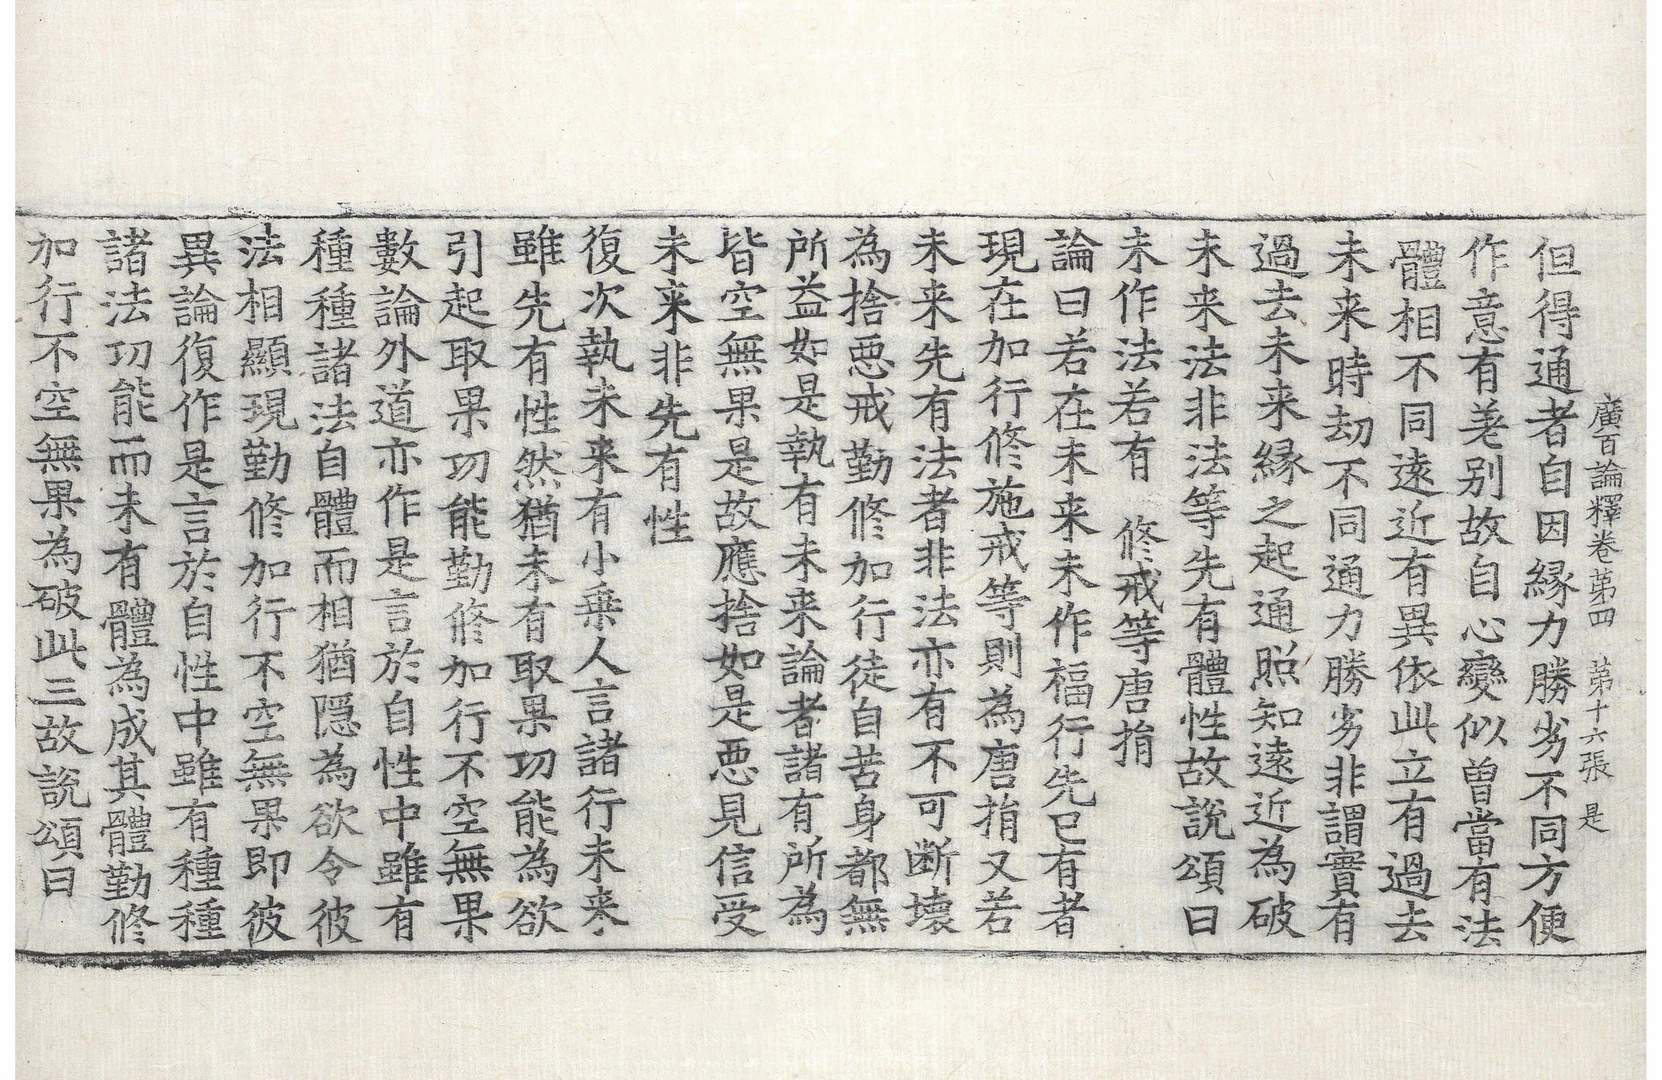 廣百論釋卷第四　第十六張　是
但得通者自因緣力勝劣不同方便
作意有差别故自心變似曾當有法
體相不同遠近有異依此立有過去
未来時劫不同通力勝劣非謂實有
過去未来緣之起通照知遠近為破
未来法非法等先有體性故說頌曰
未作法若有　修戒等唐捐
論曰若在未来未作福行先已有者
現在加行修施戒等則為唐捐又若
未来先有法者非法亦有不可断壞
為捨惡戒勤修加行徒自苦身都無
所益如是執有未来論者諸有所為
皆空無果是故應捨如是惡見信受
未来非先有性
復次執未来有小乗人言諸行未来
雖先有性然猶未有取果功能為欲
引起取果功能勤修加行不空無果
數論外道亦作是言於自性中雖有
種種諸法自體而相猶隱為欲令彼
法相顯現勤修加行不空無果即彼
異論復作是言於自性中雖有種種
諸法功能而未有體為成其體勤修
加行不空無果為破此三故説頌曰